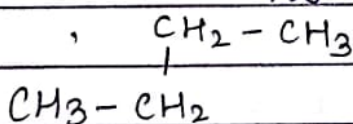 , CH2 - CH3
CH3 - CH2